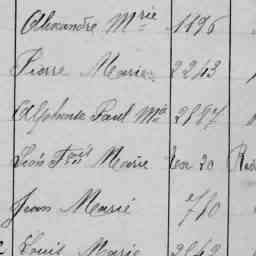 Alexandre Mrie 1896
Pierre Marie 2243
Alphonse Paul Mie 2887
Léon Fçois Marie Ten 20
Jean Marie 760
Louis Marie